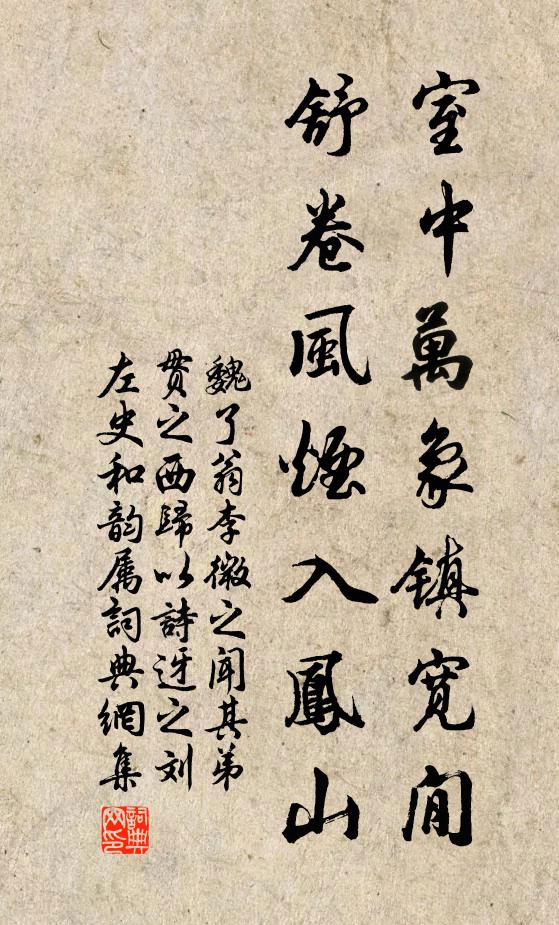 室中萬象鎮寬閒
舒卷風煙入鳳山
魏了翁李微之闻其弟
貫之西歸以詩迓之刘
左史和韵属詞典網集
詞典网印